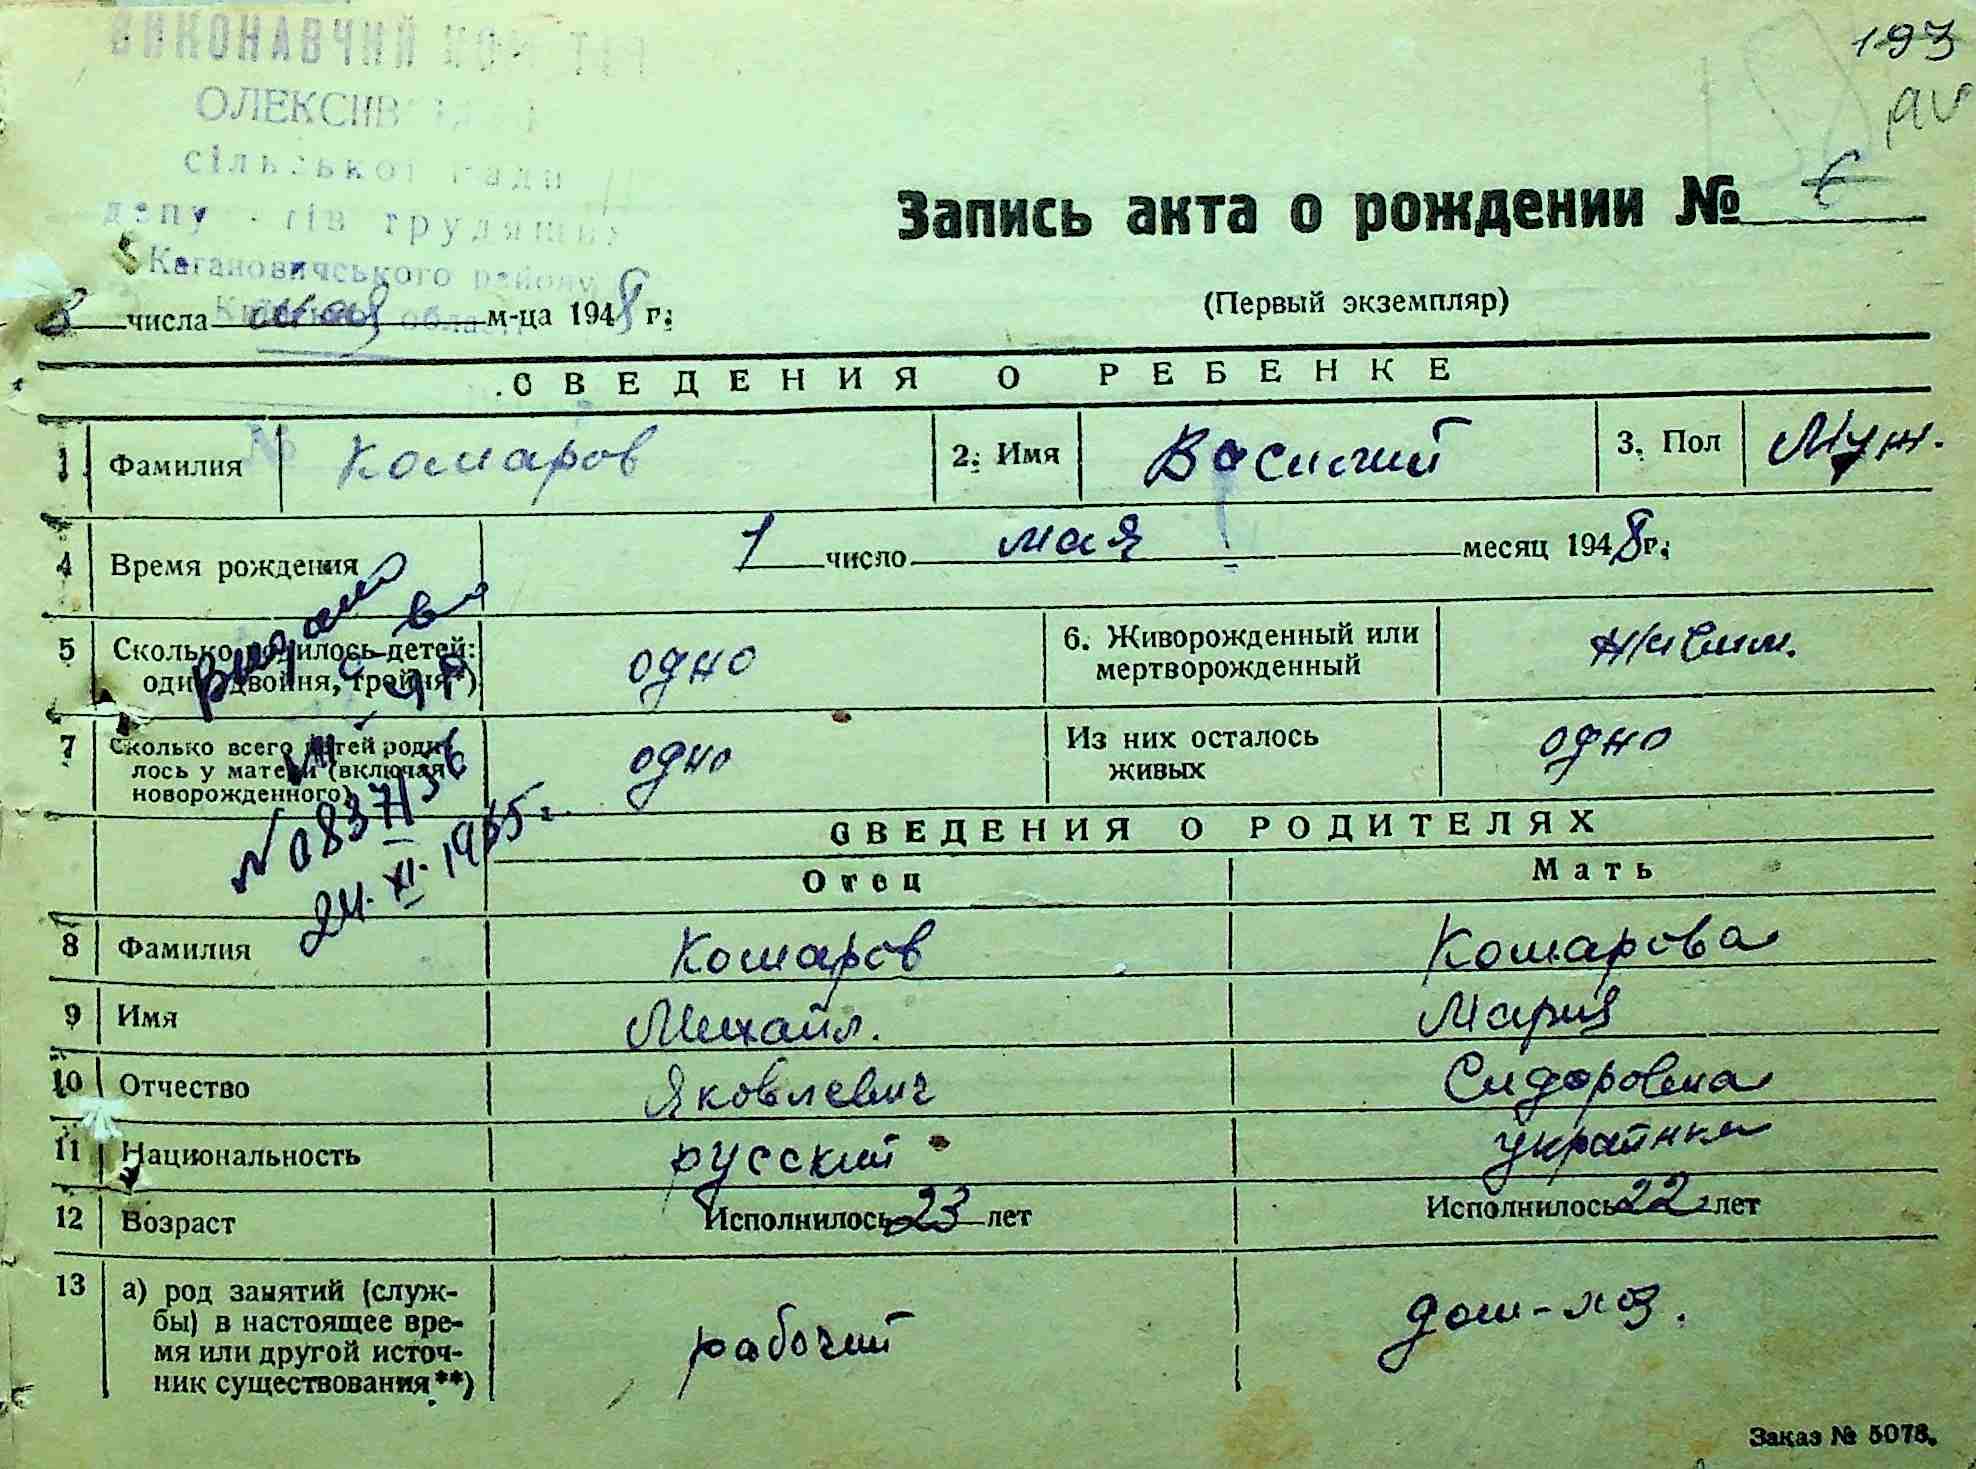 193
ВИКОНАВЧИЙ КОМІТЕТ
ОЛЕКСІІВ
сільської ради
депутатів трудящих
Кагановичського району
області
Запись акта о рождении № 6
(Первый экземпляр)
8 числа мая м-ца 1948 г.
СВЕДЕНИЯ О РЕБЕНКЕ
1. Фамилия Комаров 2. Имя Василий 3. Пол Муж.
4 Время рождения 1 число мая месяц 1948 г.
5 Сколько родилось детей: одно 6. Живорожденный или живым.
один, двойня, тройня*) мертворожденный
7 Сколько всего детей роди- одно Из них осталось одно
лось у матери (включая живых
новорожденного)
Видано
с-во
№ 083713
24. XI. 1965 г.
СВЕДЕНИЯ О РОДИТЕЛЯХ
Отец Мать
8 Фамилия Комаров Комарова
9 Имя Михайл. Мария
10 Отчество Яковлевич Сидоровна
11 Национальность русский украінка
12 Возраст Исполнилось 23 лет Исполнилось 22 лет
13 а) род занятий (служ-
бы) в настоящее вре-
мя или другой источ- рабочий дом-хоз.
ник существования**)
Заказ № 5078.